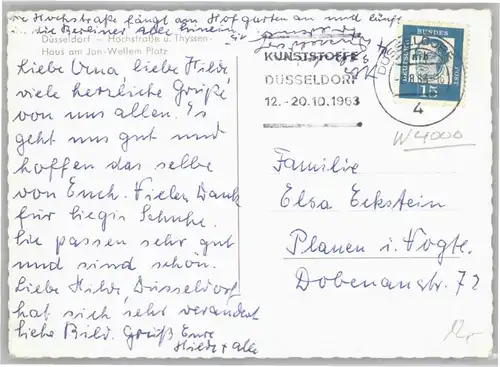 Hochstraße fängt am Hofgarten an und
in die Berliner Allee
Düsseldorf - Hochstraße u. Thyssen-
Haus am Jan-Wellem Platz
Liebe Oma, liebe Hilde,
viele herzliche Grüße
von uns allen. Es
geht uns gut und
hoffen das selbe
von Euch. Vielen Dank
für Schuhe.
Sie passen sehr gut
und sind schön.
Liebe Hilde, Düsseldorf
hat sich sehr verändert
siehe Bild. Gruß Eure
+ alle
KUNSTSTOFFE
DÜSSELDORF
12.-20.10.1963
DÜSSELDORF
4
DEUTSCHE
BUNDESPOST
15
W4000
Familie
Elsa Eckstein
Plauen i. Vogtl.
Dobenaustr. 72